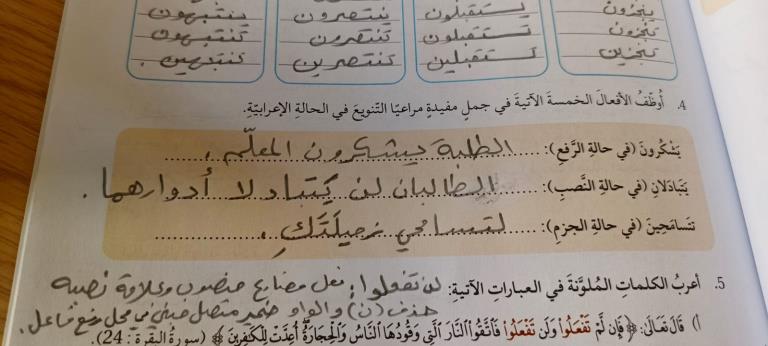 ينجزون ينتصرون ينتبهون
تنجزون تستقبلون تنتصرون تنتبهون
تنجزين تستقبلين تنتصرين تنتبهين.
4. أُوَظِّفُ الأفعالَ الخمسةَ الآتيةَ في جملٍ مفيدةٍ مراعيًا التّنويعَ في الحالةِ الإعرابيّةِ.
يَشْكُرونَ (في حالةِ الرَّفعِ): الطلبة يشكرون المعلّم.
يَتَبادَلانِ (في حالةِ النَّصبِ): الطالبان لن يتبادلا أدوارهما.
تتَسامَحِينَ (في حالةِ الجزمِ): لتسامحي زميلَتَكِ.
5. أعربُ الكلماتِ المُلوَّنةَ في العباراتِ الآتيةِ: لن تفعلوا: فعل مضارع منصوب وعلامة نصبه
حذف (ن) والواو ضمير متصل مبني في محل رفع فاعل.
أ) قَالَ تَعَالَى: ﴿فَإِن لَّمْ تَفْعَلُوا وَلَن تَفْعَلُوا فَاتَّقُوا النَّارَ الَّتِي وَقُودُهَا النَّاسُ وَالْحِجَارَةُ أُعِدَّتْ لِلْكَافِرِينَ﴾ (سورةُ البقرةِ: 24).